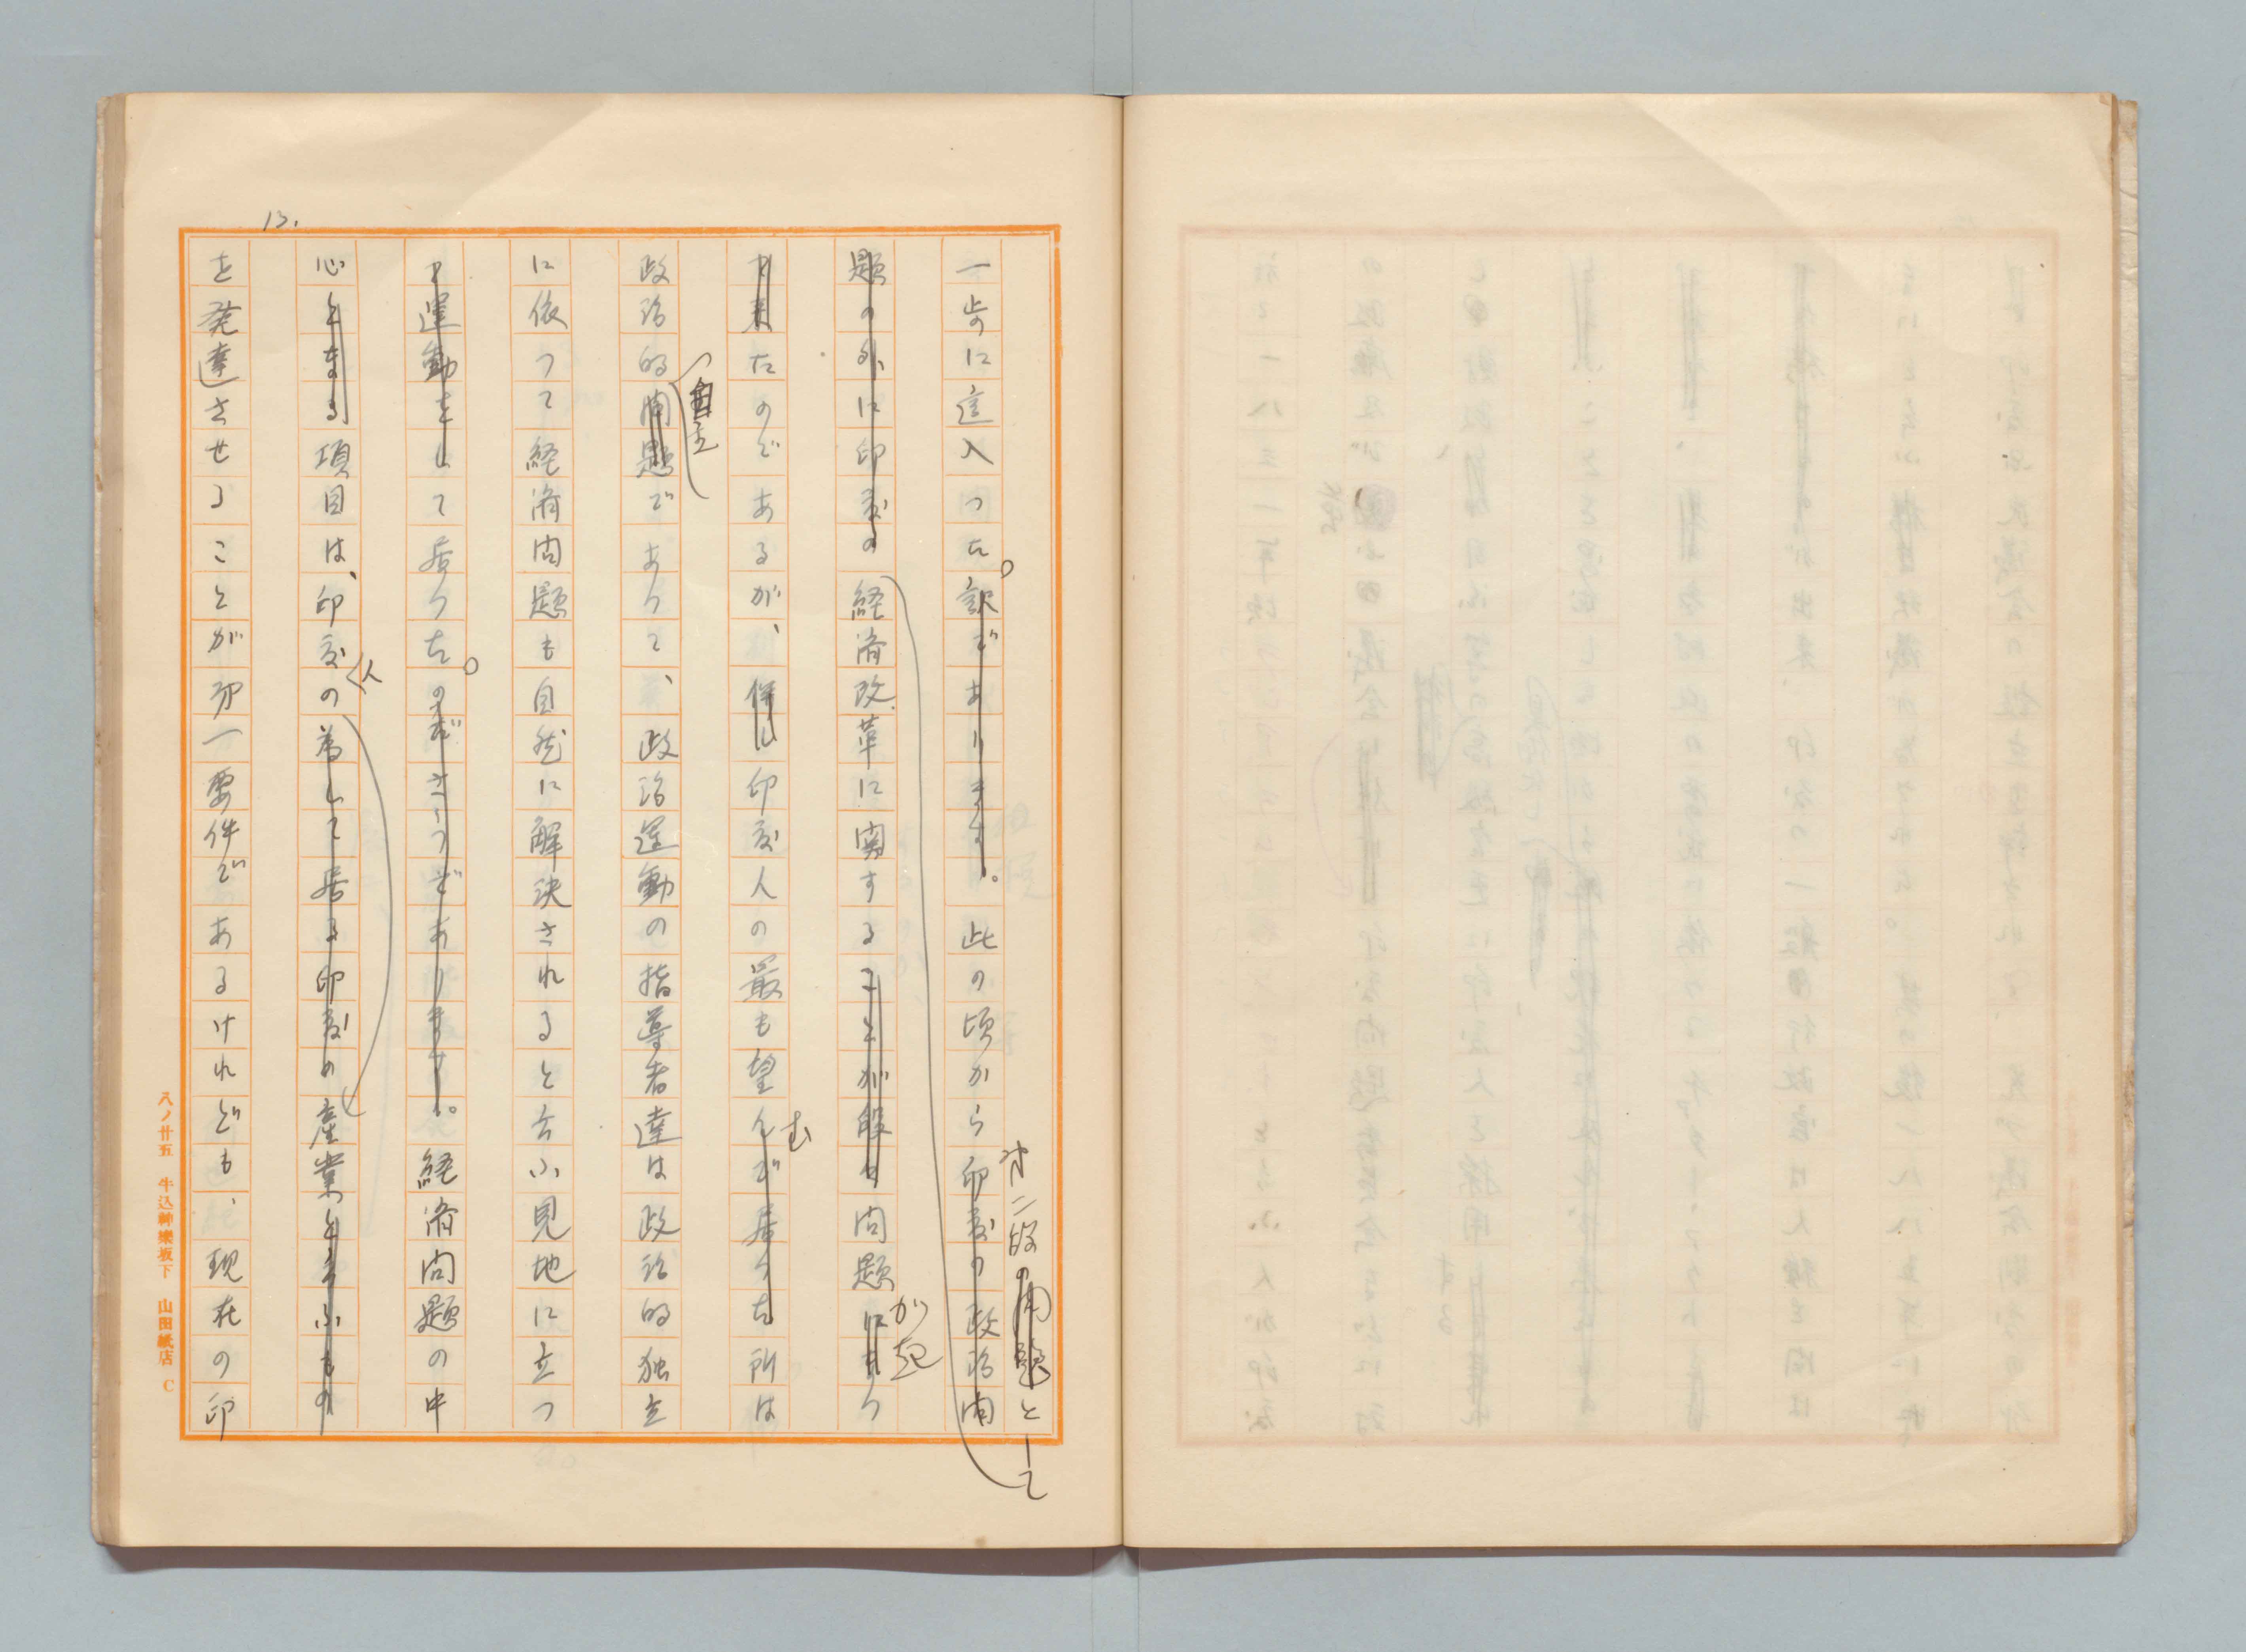 13.
一歩に這入つた。訳であります。此の頃から印度の政治問
第二段の問題として
題の外に印度の経済改革に関することが段々問題になつ
が起
て来たのであるが、併し印度人の最も望んで居つた所は
む
政治的問題であつて、政治運動の指導者達は政治的独立
自主
に依つて経済問題も自然に解決されると云ふ見地に立つ
て運動をして居つた。のださうであります。経済問題の中
心となる項目は、印度の為して居る印度の産業と云ふもの
人
を発達させることが第一要件であるけれども、現在の印
八ノ廿五 牛込神樂坂下 山田紙店 C